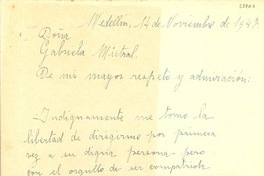 Medellín, 14 de Noviembre de 194
Doña
Gabriela Mistral.
De mi mayor respeto y admiración:
Indignamente me tomo la
libertad de dirigirme por primera
vez a su digna persona, pero
con el orgullo de ser compatriota